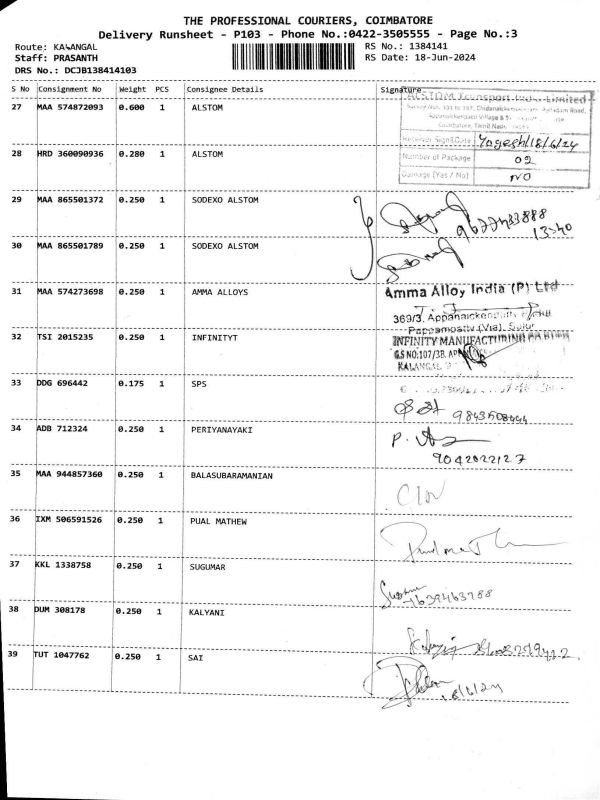 THE PROFESSIONAL COURIERS, COIMBATORE
Delivery Runsheet - P103 - Phone No.:0422-3505555 - Page No.:3
Route: KALANGAL
RS No.: 1384141
Staff: PRASANTH
RS Date: 18-Jun-2024
DRS No.: DCJB138414103
S No Consignment No Weight PCS Consignee Details Signature
27 MAA 574872093 0.600 1 ALSTOM
ALSTOM Transport India Limited
Coimbatore, Tamil Nadu
Receiver Sign&Date Yogesh/18/6/24
28 HRD 360090936 0.280 1 ALSTOM
Number of Package 02
Damage (Yes / No) NO
29 MAA 865501372 0.250 1 SODEXO ALSTOM
9677433888
13-40
30 MAA 865501789 0.250 1 SODEXO ALSTOM
31 MAA 574273698 0.250 1 AMMA ALLOYS
Amma Alloy India (P) Ltd
369/3, Appanaickenpatti
Pappampatty (Via), Sulur
32 TSI 2015235 0.250 1 INFINITYT
INFINITY MANUFACTURING
G.S NO:107/3B, AP
KALANGAL
33 DDG 696442 0.175 1 SPS
34 ADB 712324 0.250 1 PERIYANAYAKI
P.
9042022127
35 MAA 944857360 0.250 1 BALASUBARAMANIAN
36 IXM 506591526 0.250 1 PUAL MATHEW
37 KKL 1338758 0.250 1 SUGUMAR
38 DUM 308178 0.250 1 KALYANI
39 TUT 1047762 0.250 1 SAI
18/6/24